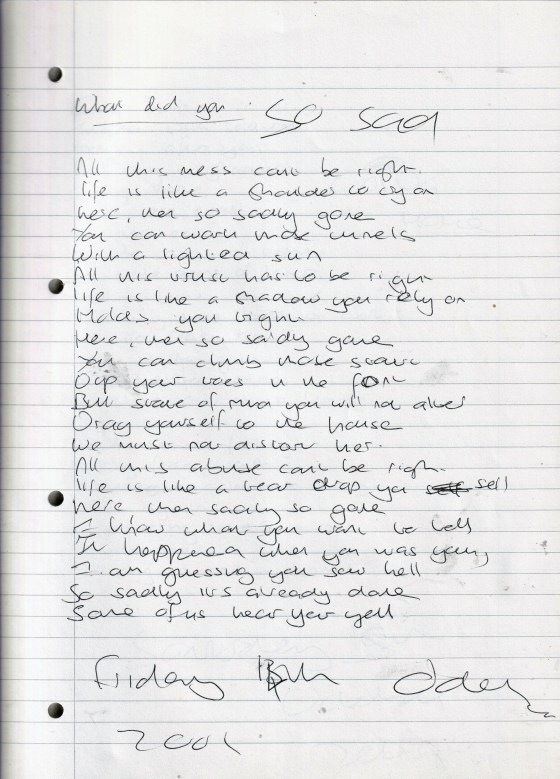 What did you So sad
All this mess can't be right.
life is like a shoulder to cry on
here, then so sadly gone
You can walk those
With a lighted sun
All this trust has to be right
life is like a shadow you rely on
Holds you tight
Here, then so sadly gone
You can climb those stairs
Dip your toes in the font
But some of them you will not alter
Drag yourself to the house
We must not disturb her.
All this abuse can't be right.
life is like a tear drop you sell
here then sadly so gone
I know what you want to tell
It happened when you was young,
I am guessing you saw hell
So sadly it's already done
Some of us hear your yell
Friday